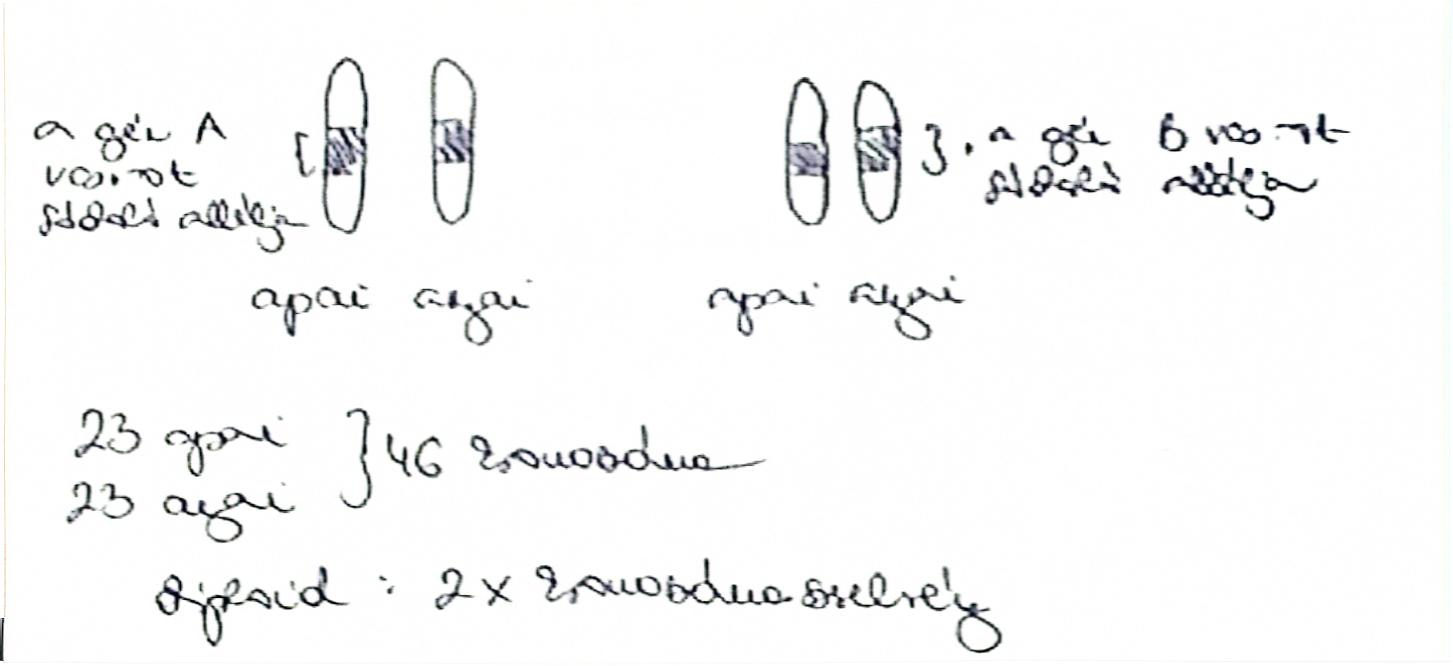 a gén A
változat
kódoló allélja
a gén b változat
kódoló allélja
apai anyai
apai anyai
23 apai
23 anyai
} 46 kromoszóma
diploid : 2x kromoszómaszerelvény